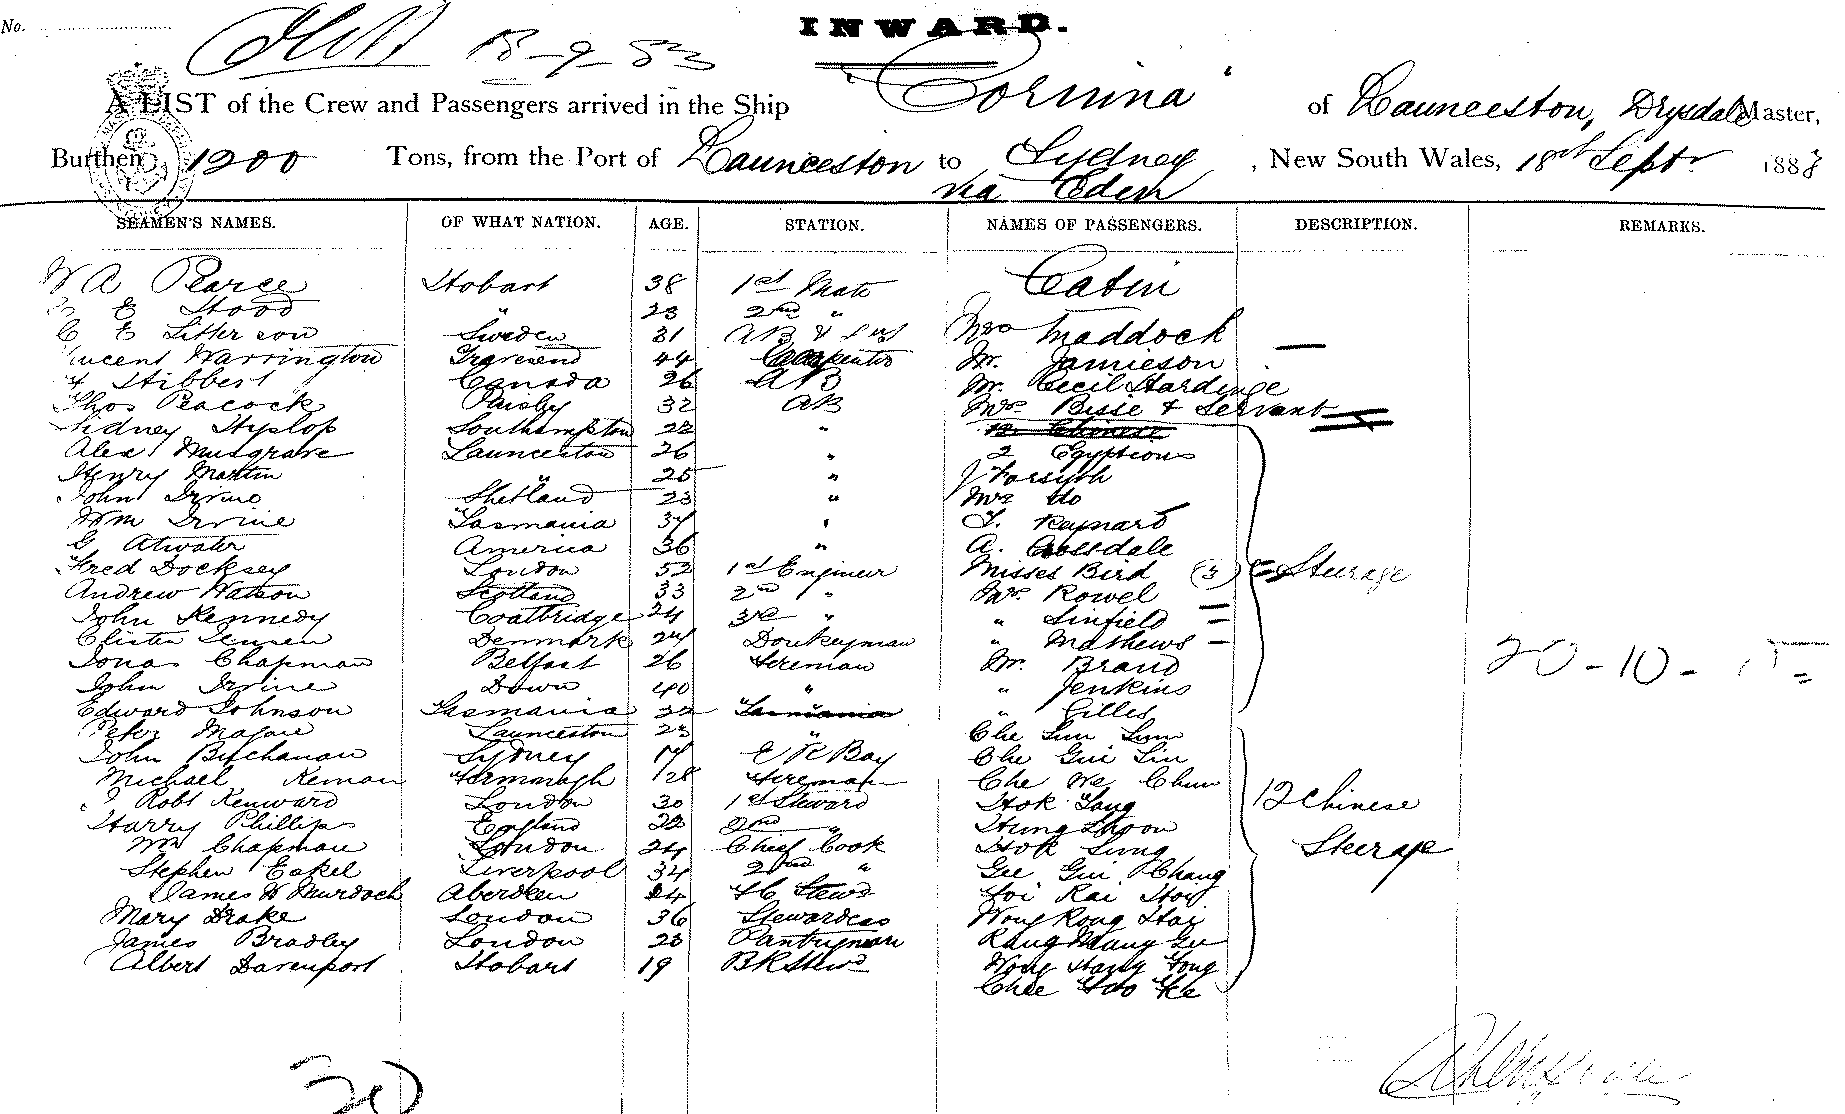 No.
INWARD.
18-9-83
A LIST of the Crew and Passengers arrived in the Ship Corinna of Launceston, Drysdale Master,
Burthen 1200 Tons, from the Port of Launceston to Sydney, New South Wales, 18th Sept 1883
via Eden
SEAMEN'S NAMES. OF WHAT NATION. AGE. STATION. NAMES OF PASSENGERS. DESCRIPTION. REMARKS.
W A Pearce Hobart 38 1st Mate Cabin
E Hood " 23 2nd "
C E Sitterson Sweden 31 AB & Mrs Maddock
Vincent Warrington Gravesend 44 Carpenter Mr. Jamieson
Hibbert Canada 26 AB Mr. Cecil Hardinge
Thos Peacock Paisley 32 AB Mrs Bisse & Servant
Sidney Hyslop Southampton 22 " 12 Chinese
Alex Musgrave Launceston 26 " 2 Egyptians
Henry Martin " 25 " J Forsyth
John Irvine Shetland 23 " Mrs do
Wm Irvine Tasmania 37 " T. Raynard
G Atwater America 36 " A.
Fred Docksey London 52 1st Engineer Misses Bird (3) Steerage
Andrew Watson Scotland 33 2nd " Mrs. Rowel
John Kennedy Coatbridge 24 3rd " " Linfield
Jensen Denmark 24 Donkeyman " Mathews
Jonas Chapman Belfast 26 Fireman Mr. Brand
John Irvine Down 40 " " Jenkins
Edward Johnson Tasmania 22 Tasmania " Gilles
Peter Launceston 23 " Che Sun Sum
John Buchanan Sydney 17 E R Boy Che Gui Lin
Michael Kernan Fermanagh 28 Fireman Che We Chun
Robt Kenward London 30 1st Steward Hok Yang 12 Chinese
Harry Phillips England 22 2nd " Hung Shoon
Wm Chapman London 24 Chief Cook Hok Sung Steerage
Stephen Eakel Liverpool 34 2nd " Gee Gui Chang
James W Murdoch Aberdeen 24 FC Stewd Foi Kai Hoy
Mary Drake London 36 Stewardess Wong Kong Hai
James Bradley London 23 Pantryman
Albert Davenport Hobart 19 BK Stewd Wong Hang Fong
Chee Foo Kee
20-10-
30